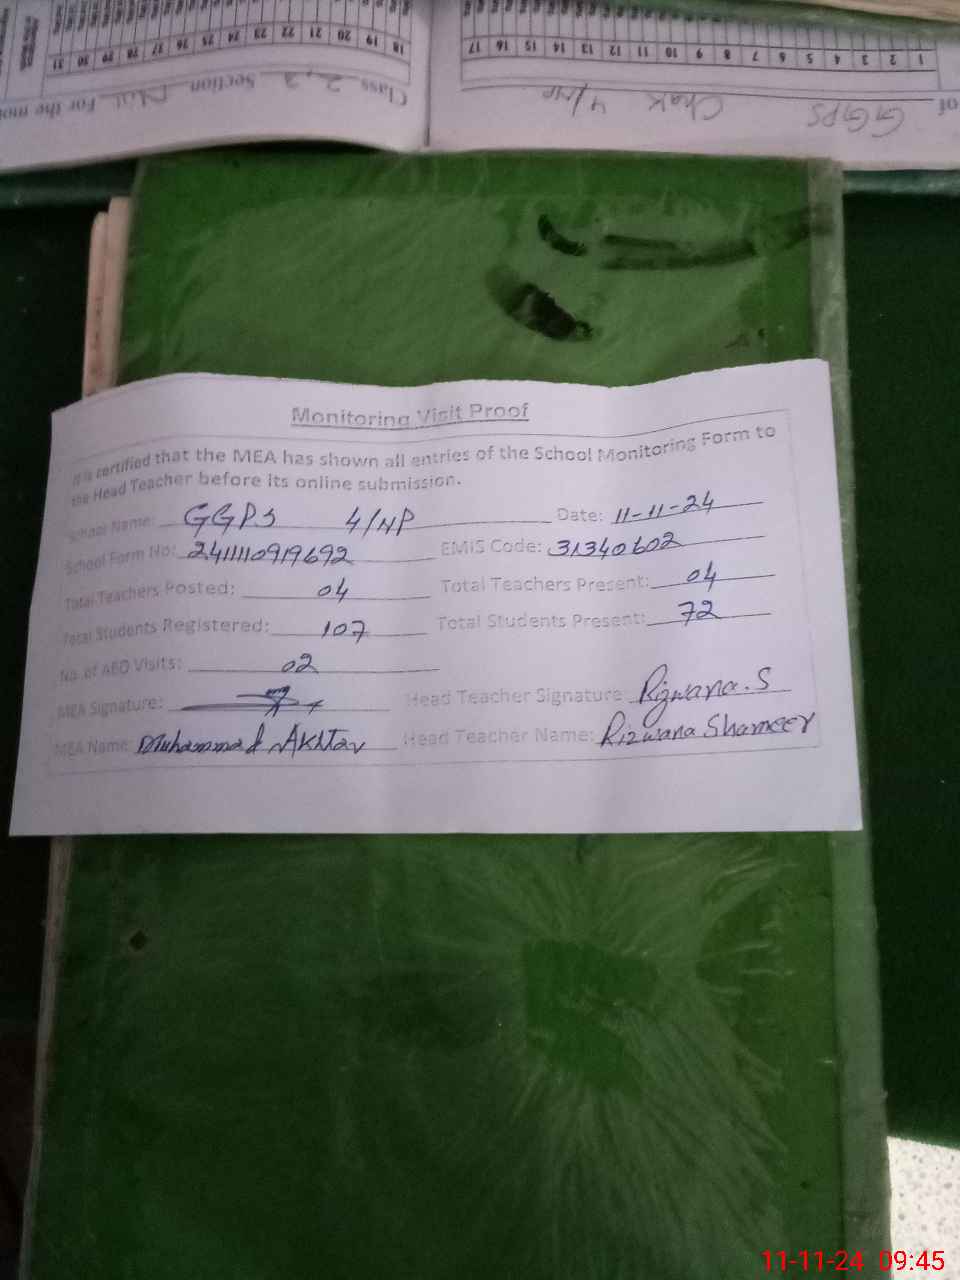 31 30 29 28 27 26 25 24 23 22 21 20 19 18
17 16 15 14 13 12 11 10 9 8 7 6 5 4 3 2 1
Class 2,3 Section For the mo
of GGPS Chak 4/NP
Monitoring Visit Proof
It is certified that the MEA has shown all entries of the School Monitoring Form to
the Head Teacher before its online submission.
School Name: GGPS 4/NP Date: 11-11-24
School Form No: 241110919692 EMIS Code: 31340602
Total Teachers Posted: 04 Total Teachers Present: 04
Total Students Registered: 107 Total Students Present: 72
No. of AEO Visits: 02
MEA Signature: Head Teacher Signature: Rizwana.S
MEA Name: Muhammad Akhtar Head Teacher Name: Rizwana Shameer
11-11-24 09:45